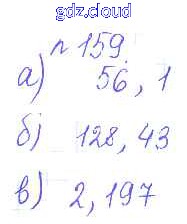 gdz.cloud
n 159.
а) 56, 1
б) 128, 43
в) 2, 197